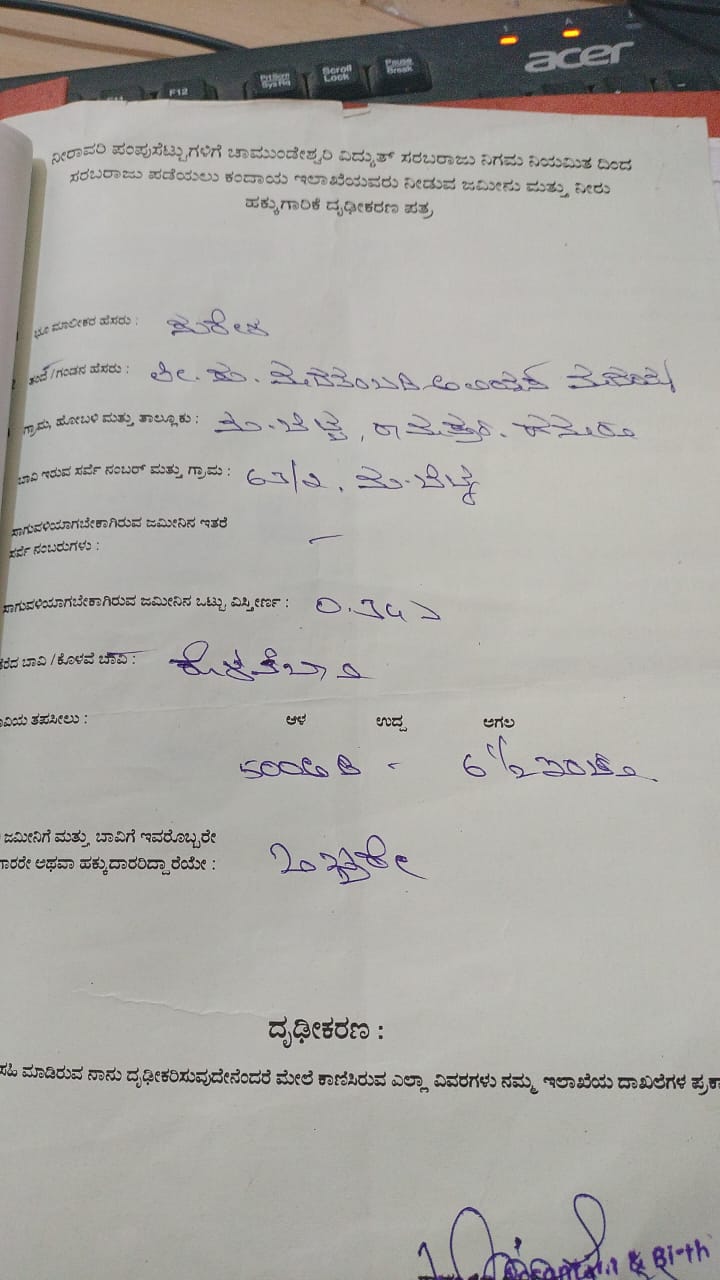 acer
F12
PrtScrn
SysRq
Scroll
Lock
Pause
Break
ನೀರಾವರಿ ಪಂಪುಸೆಟ್ಟುಗಳಿಗೆ ಚಾಮುಂಡೇಶ್ವರಿ ವಿದ್ಯುತ್ ಸರಬರಾಜು ನಿಗಮ ನಿಯಮಿತ ದಿಂದ
ಸರಬರಾಜು ಪಡೆಯಲು ಕಂದಾಯ ಇಲಾಖೆಯವರು ನೀಡುವ ಜಮೀನು ಮತ್ತು ನೀರು
ಹಕ್ಕುಗಾರಿಕೆ ದೃಢೀಕರಣ ಪತ್ರ
ಭೂ ಮಾಲೀಕರ ಹೆಸರು : ಸುರೇಶ
ತಂದೆ/ಗಂಡನ ಹೆಸರು :
ಗ್ರಾಮ, ಹೋಬಳಿ ಮತ್ತು ತಾಲ್ಲೂಕು :
ಬಾವಿ ಇರುವ ಸರ್ವೆ ನಂಬರ್ ಮತ್ತು ಗ್ರಾಮ : 63/2,
ಸಾಗುವಳಿಯಾಗಬೇಕಾಗಿರುವ ಜಮೀನಿನ ಇತರೆ
ಸರ್ವೆ ನಂಬರುಗಳು : –
ಸಾಗುವಳಿಯಾಗಬೇಕಾಗಿರುವ ಜಮೀನಿನ ಒಟ್ಟು ವಿಸ್ತೀರ್ಣ :
ತೆರೆದ ಬಾವಿ /ಕೊಳವೆ ಬಾವಿ : ಕೊಳವೆಬಾವಿ
ಬಾವಿಯ ತಪಸೀಲು : ಆಳ ಉದ್ದ ಅಗಲ
500 ಅಡಿ - 6 1/2 ಇಂಚು
ಜಮೀನಿಗೆ ಮತ್ತು ಬಾವಿಗೆ ಇವರೊಬ್ಬರೇ
ಗಾರರೇ ಅಥವಾ ಹಕ್ಕುದಾರರಿದ್ದಾರೆಯೇ : ಒಬ್ಬರೇ
ದೃಢೀಕರಣ :
ಸಹಿ ಮಾಡಿರುವ ನಾನು ದೃಢೀಕರಿಸುವುದೇನೆಂದರೆ ಮೇಲೆ ಕಾಣಿಸಿರುವ ಎಲ್ಲಾ ವಿವರಗಳು ನಮ್ಮ ಇಲಾಖೆಯ ದಾಖಲೆಗಳ ಪ್ರಕಾ
& Birth